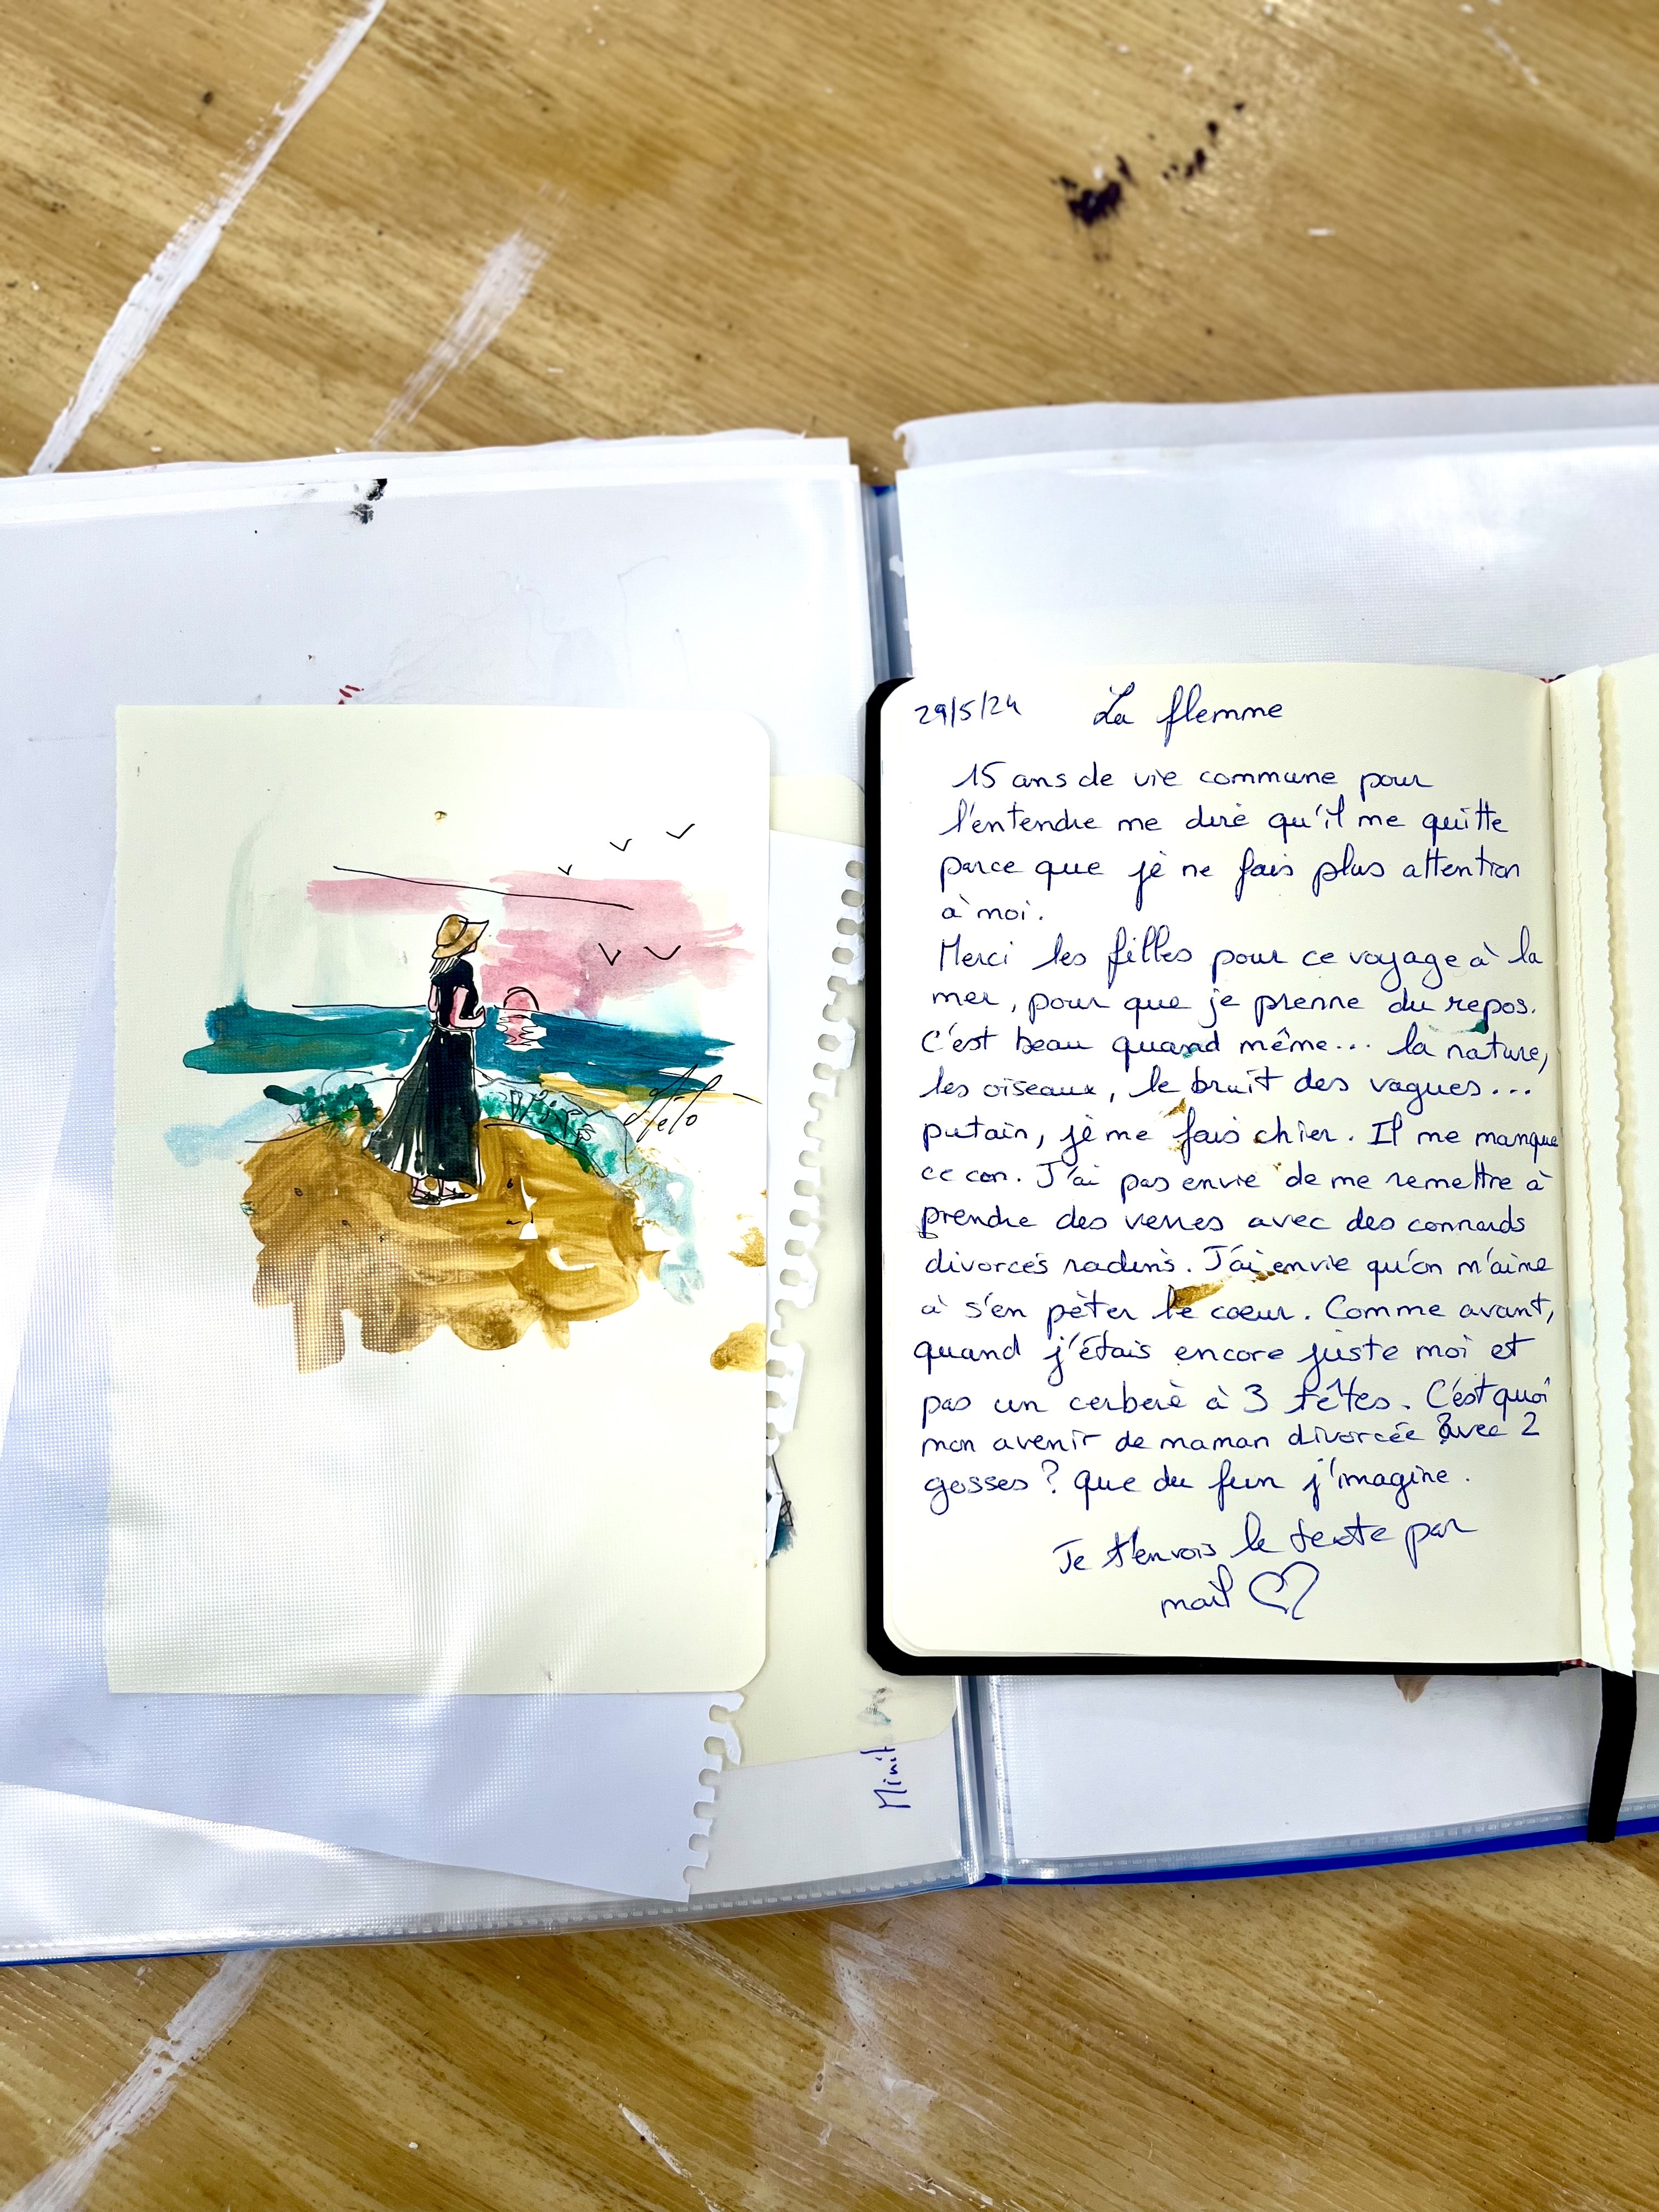 29/5/24 La flemme
15 ans de vie commune pour
l'entendre me dire qu'il me quitte
parce que je ne fais plus attention
à moi.
Merci les filles pour ce voyage à la
mer, pour que je prenne du repos.
C'est beau quand même... la nature,
les oiseaux, le bruit des vagues...
putain, je me fais chier. Il me manque
ce con. J'ai pas envie de me remettre à
prendre des verres avec des connards
divorcés radins. J'ai envie qu'on m'aime
à s'en pèter le coeur. Comme avant,
quand j'étais encore juste moi et
pas un cerbere à 3 têtes. C'est quoi
mon avenir de maman divorcée avec 2
gosses ? Que du fun j'imagine.
Je t'envois le texte par
mail